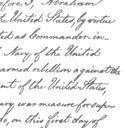 efore I, Abraham
United States, by virtue
ted as Commander-in-
Navy of the United
armed rebellion against the
ent of the United States,
ary war measure for sup-
do, on this first day of